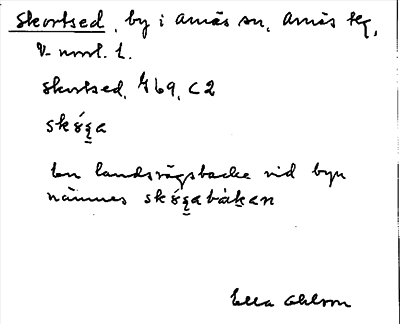 Skortsed, by i Arnäs sn, Arnäs tg,
V-norrl. l.
Skortsed, 469, C2
skó̤ʒa
En landsvägsbacke vid byn
nämnes skó̤ʒabákan
Ella Ohlson